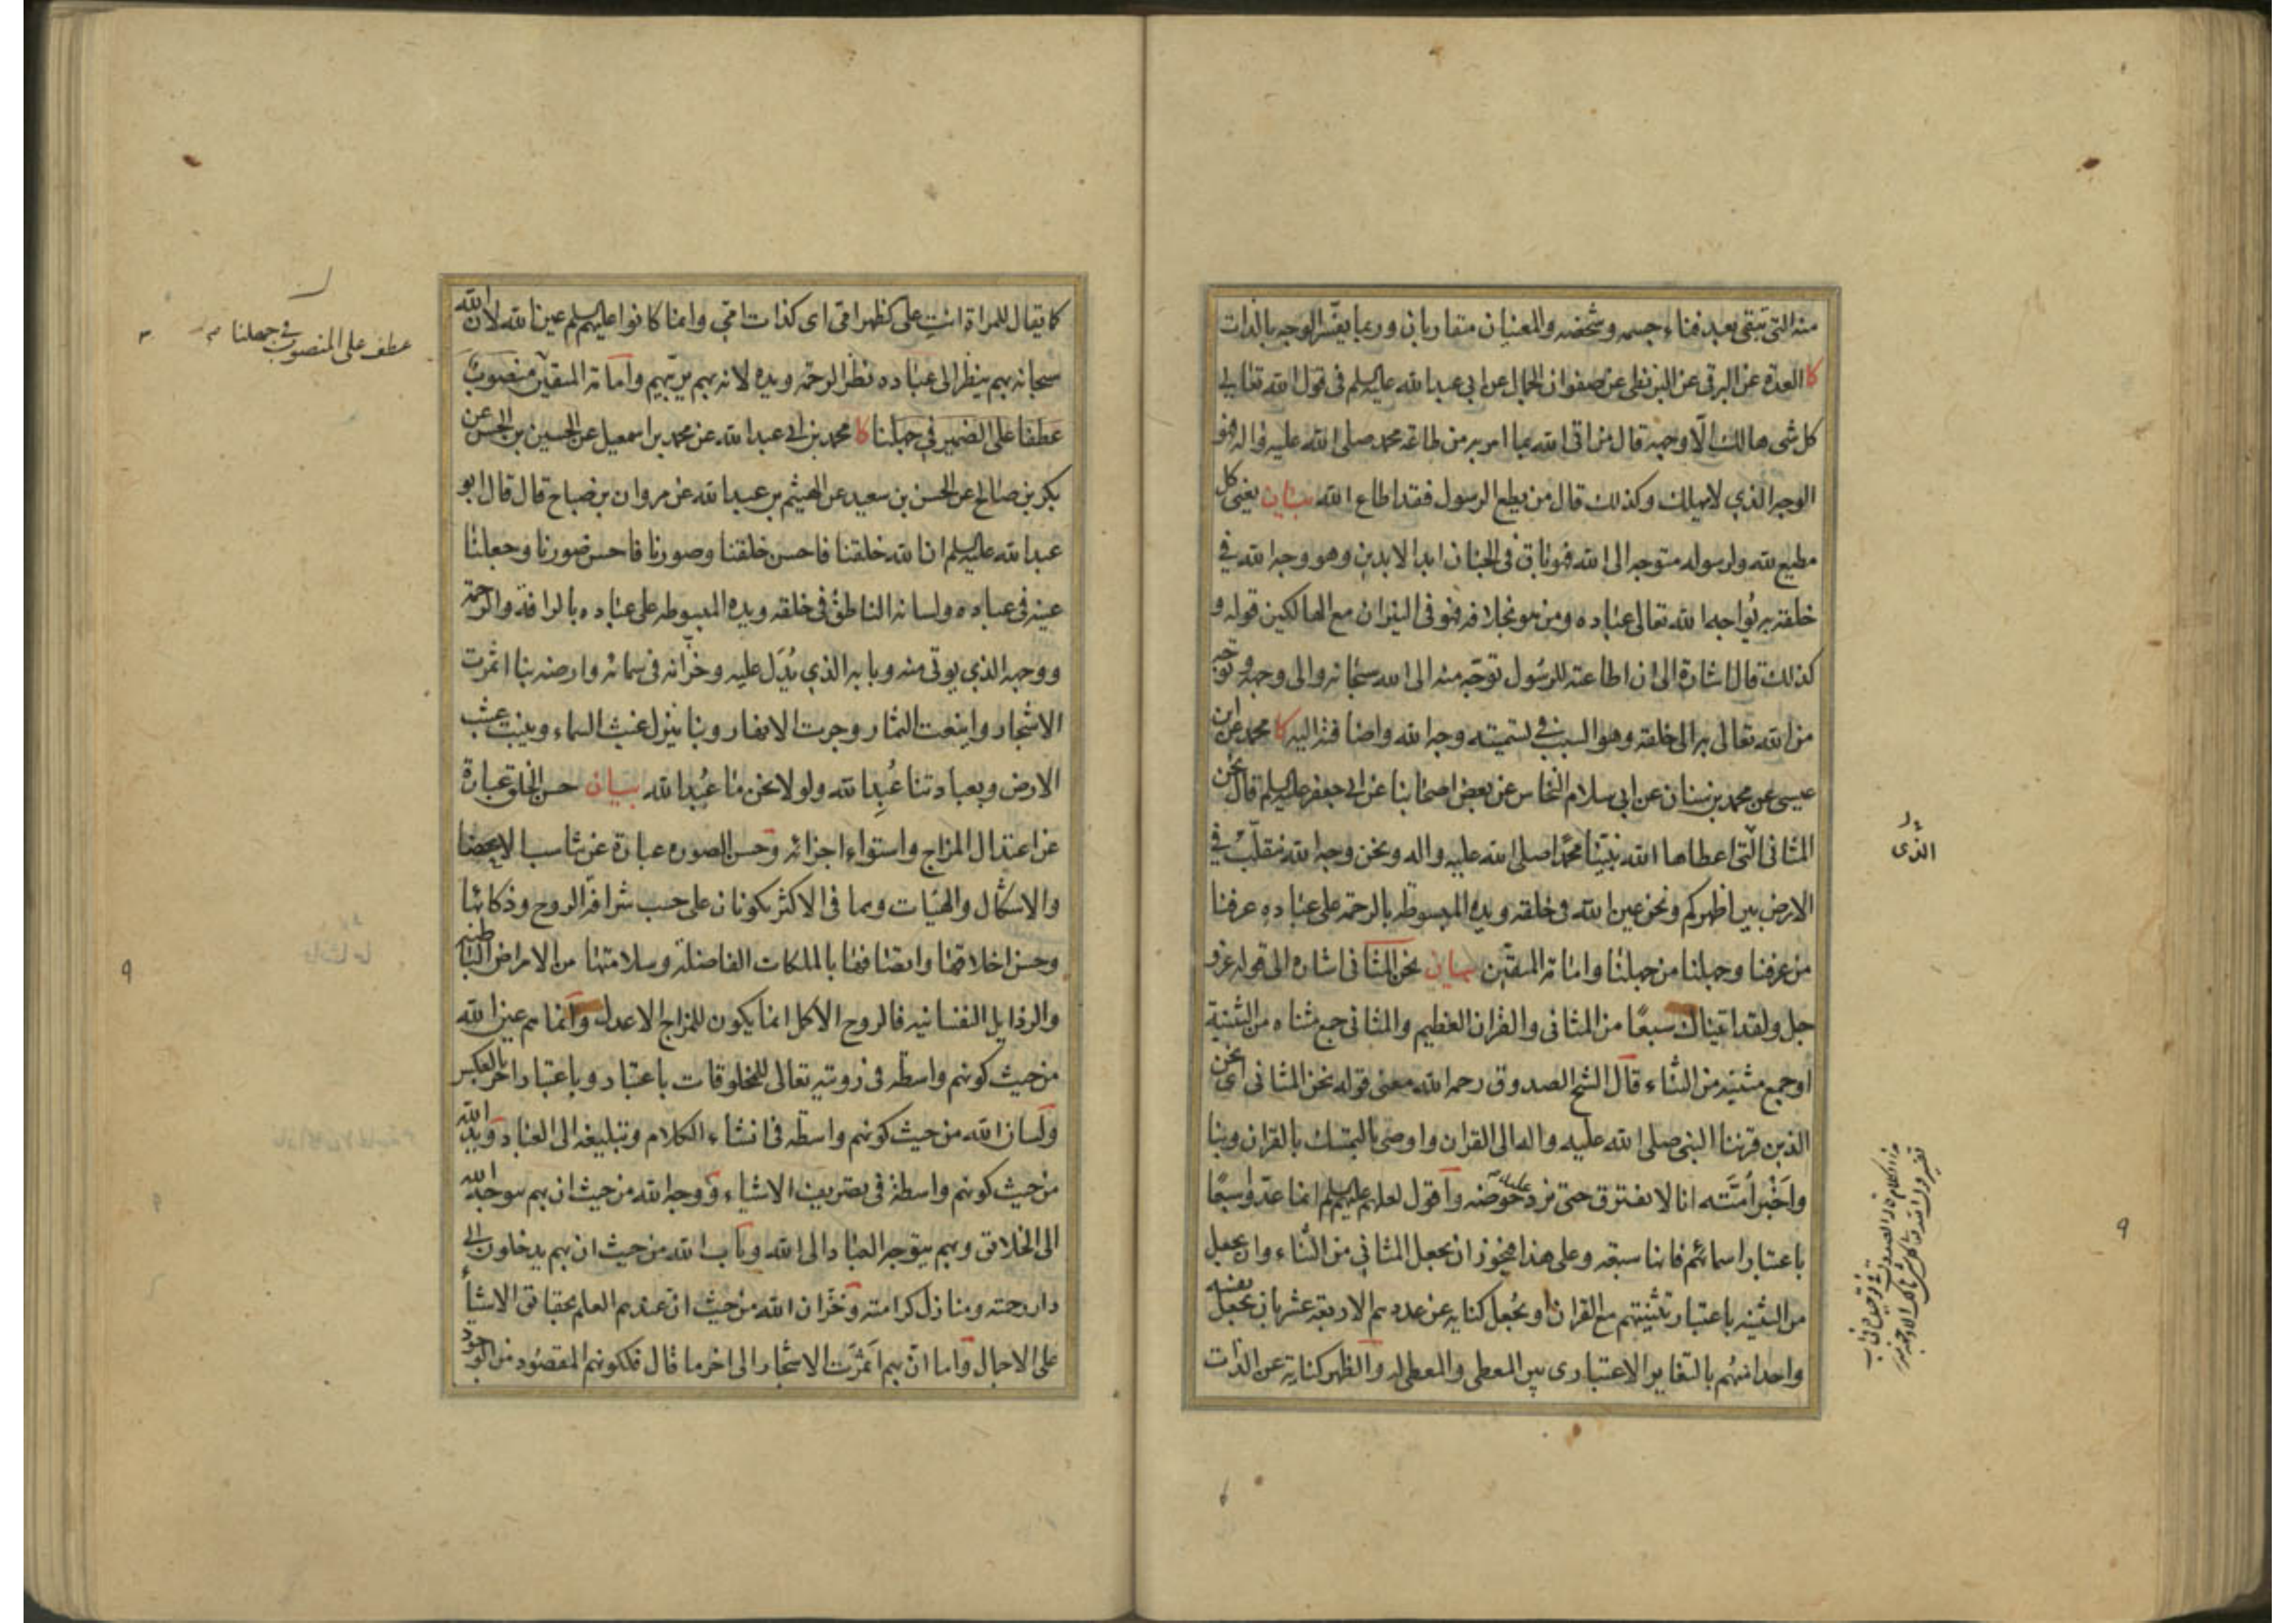 منه التي تبقى بعد فناء جسمه وشخصه والمعنيان متقاربان وربما يفسّر الوجه بالذات
كا العدة عن البرقي عن البزنطي عن صفوان الجمال عن ابي عبد الله عليه السلم في قول الله تعالى
كل شى هالك الّا وجهه قال من اتى الله بما امر به من طاعة محمد صلى الله عليه واله فهو
الوجه الذي لا يهلك وكذلك قال من يطع الرسول فقد اطاع الله بيان يعنى كل
مطيع لله ولرسوله متوجه الى الله فهو باق في الجنان ابد الابدين وهو وجه الله في
خلقه به يُواجه الله تعالى عباده ومن هو بخلافه فهو في النيران مع الهالكين قوله و
كذلك قال اشارة الى ان اطاعته للرسول توجّه منه الى الله سبحانه والى وجهه وتوجه
من الله تعالى به الى خلقه وهو السبب في تسميته وجه الله واضافته اليه كا محمد عن ابن
عيسى عن محمد بن سنان عن ابي سلام النخاس عن بعض اصحابنا عن ابي جعفر عليه السلم قال نحن
المثاني الّتي اعطاها الله نبيّنا محمّدا صلى الله عليه واله ونحن وجه الله نتقلّب في
الارض بين اظهركم ونحن عين الله في خلقه ويده المبسوطة بالرحمة على عباده عرفنا
من عرفنا وجهلنا من جهلنا وامامة المتقين بيان نحن المثاني اشارة الى قوله عز و
جل ولقد اتيناك سبعًا من المثاني والقران العظيم والمثاني جمع مثناه من التثنية
او جمع مثنيه من الثناء قال الشيخ الصدوق رحمه الله معنى قوله نحن المثاني اى نحن
الذين قرننا النبي صلى الله عليه واله الى القران واوصى بالتمسك بالقران وبنا
واخبر اُمّته انا لا نفترق حتى نرد عليه حوضه واقول لعلهم عليهم السلم انما عدّوا سبعًا
باعتبار اسمائهم فانها سبعة وعلى هذا فيجوز ان يجعل المثاني من الثناء وان يجعل
من التثنية باعتبار تثنيتهم مع القران او يُجعل كناية عن عددهم الاربعة عشر بان يجعل نفسه
واحدا منهم بالتغاير الاعتبارى بين المعطى والمعطى له والظهر كناية عن الذات
الذى
كما يقال للمراة انتِ على كظهر امي اى كذات امي وانما كانوا عليهم السلم عين الله لان الله
سبحانه بهم ينظر الى عباده نظر الرحمة ويده لانه بهم يربّيهم وامامة المتقين منصوب
عطفا على الضمير في جهلنا كا محمد بن ابي عبد الله عن محمد بن اسمعيل عن الحسين بن الحسن عن
بكر بن صالح عن الحسن بن سعيد عن الهيثم بن عبد الله عن مروان بن صباح قال قال ابو
عبد الله عليه السلم ان الله خلقنا فاحسن خلقنا وصورنا فاحسن صورنا وجعلنا
عينه في عباده ولسانه الناطق في خلقه ويده المبسوطه على عباده بالرافة والرحمة
ووجهه الذي يوتى منه وبابه الذي يُدَل عليه وخزّانه في سمائه وارضه بنا اثمرت
الاشجار واينعت الثمار وجرت الانهار وبنا ينزل غيث السماء وينبت عشب
الارض وبعبادتنا عُبِد الله ولولا نحن ما عُبد الله بيان حسن الخلق عبارة
عن اعتدال المزاج واستواء اجزائه وحسن الصوره عبارة عن تناسب الاعضا
والاشكال والهيات وهما في الاكثر يكونان على حسب شرافة الروح وذكائها
وحسن اخلاقها واتصافها بالملكات الفاضلة وسلامتها من الامراض الباطنيه
والرذايل النفسانيه فالروح الاكمل انما يكون للمزاج الاعدل وانما هم عين الله
من حيث كونهم واسطه في رويته تعالى للمخلوقات باعتبار وباعتبار اخر بالعكس
ولسان الله من حيث كونهم واسطة في انشاء الكلام وتبليغه الى العباد ويد الله
من حيث كونهم واسطة في تصريف الاشياء ووجه الله من حيث ان بهم يتوجه الله
الى الخلائق وبهم يتوجه العباد الى الله وباب الله من حيث ان بهم يدخلون الى
دار رحمته ومنازل كرامته وخزّان الله من حيث ان عندهم العلم بحقائق الاشياء
على الاجمال واما انّ بهم اَثمَرَت الاشجار الى اخر ما قال فلكونهم المقصود من الوجود
عطف على المنصوب في جهلنا